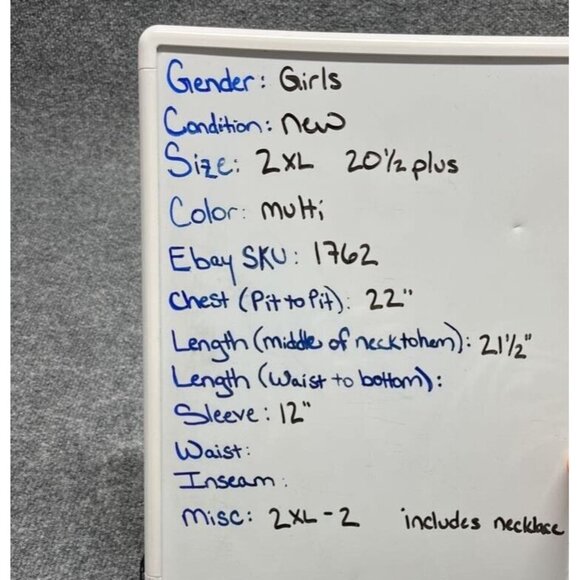 Gender: Girls
Condition: new
Size: 2XL 20 1/2 plus
Color: multi
Ebay SKU: 1762
Chest (Pit to Pit): 22"
Length (middle of neck to hem): 21 1/2"
Length (Waist to bottom):
Sleeve: 12"
Waist:
Inseam:
Misc: 2XL - 2 includes necklace